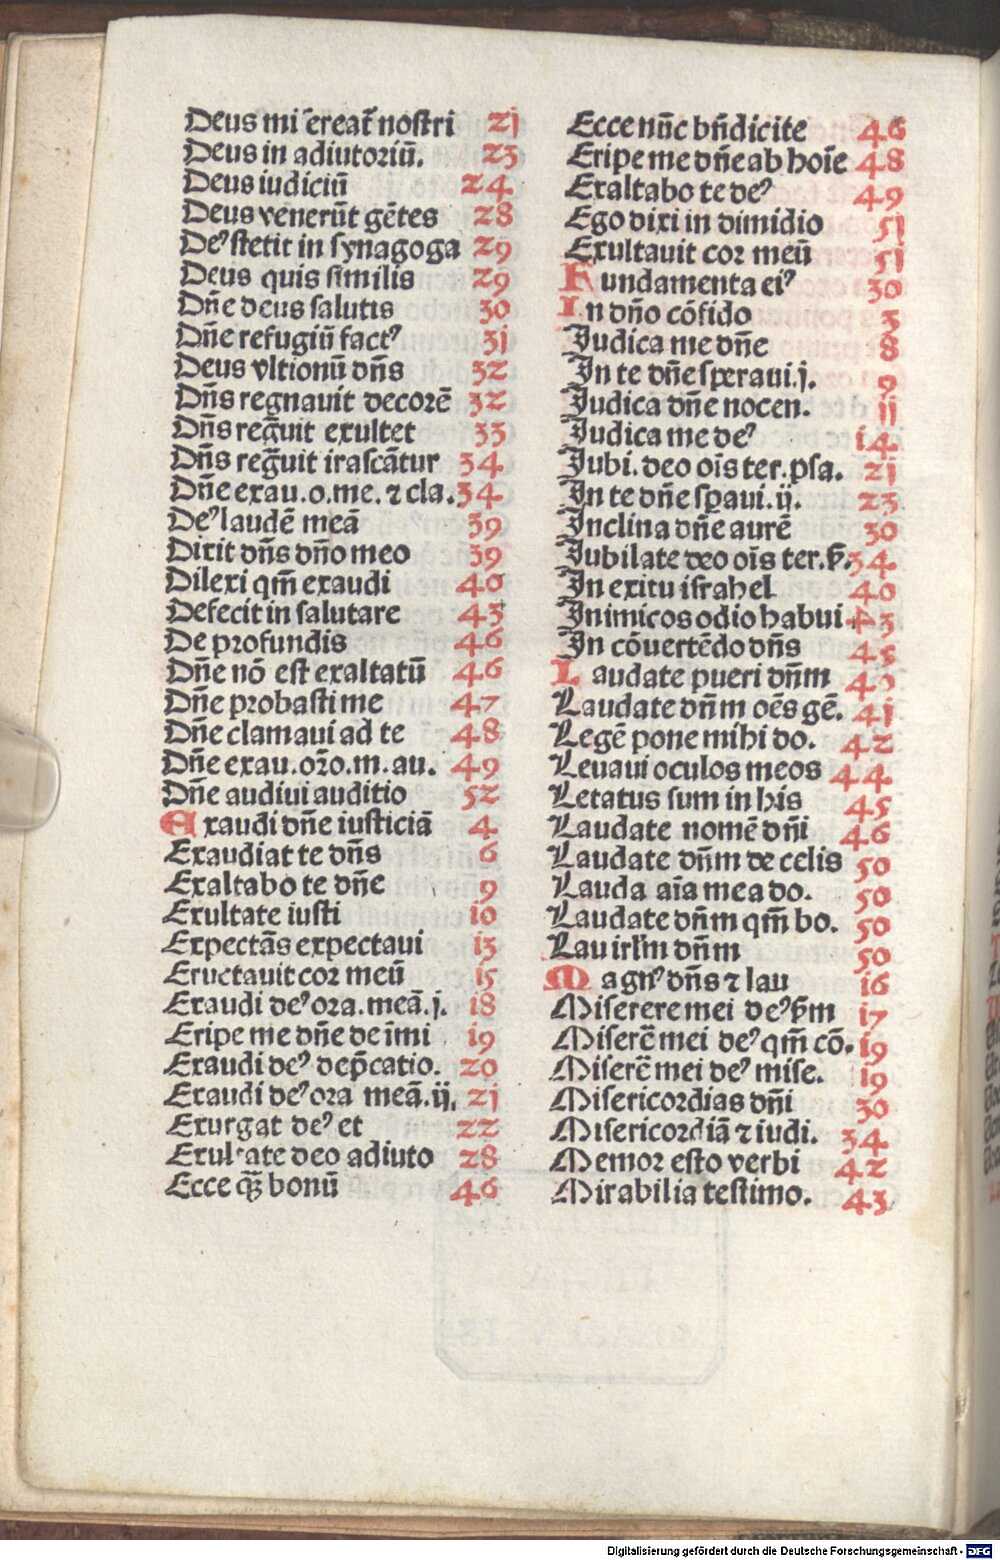 Deus mi ̄ereat̄ nostri 21
Deus in adiutoriū. 23
Deus iudiciū 24
Deus venerūt gētes 28
Deꝰ stetit in synagoga 29
Deus quis similis 29
Dn̄e deus salutis 30
Dn̄e refugiū factꝰ 31
Deus vltionū dn̄s 32
Dn̄s regnauit decorē 32
Dn̄s reḡuit exultet 33
Dn̄s reḡuit irascātur 34
Dn̄e exau.o.me.⁊ cla. 34
Deꝰ laudē meā 39
Dixit dn̄s dn̄o meo 39
Dilexi qm̄ exaudi 40
Defecit in salutare 43
De profundis 46
Dn̄e nō est exaltatū 46
Dn̄e probasti me 47
Dn̄e clamaui ad te 48
Dn̄e exau.or̄o.m.au. 49
Dn̄e audiui auditio 52
Exaudi dn̄e iusticiā 4
Exaudiat te dn̄s 6
Exaltabo te dn̄e 9
Exultate iusti 10
Expectās expectaui 13
Eructauit cor meū 15
Exaudi deꝰ ora.meā.j. 18
Eripe me dn̄e de īmi 19
Exaudi deꝰ dep̄catio. 20
Exaudi deꝰ ora meā.ij. 21
Exurgat deꝰ et 22
Exultate deo adiuto 28
Ecce q̄ꝫ bonū 46
Ecce nūc bn̄dicite 46
Eripe me dn̄e ab hoīe 48
Exaltabo te deꝰ 49
Ego dixi in dimidio 51
Exultauit cor meū 51
Fundamenta eiꝰ 30
In dn̄o cōfido 3
Judica me dn̄e 8
In te dn̄e speraui.j. 9
Judica dn̄e nocen. 11
Judica me deꝰ 14
Jubi.deo oīs ter.psa. 21
In te dn̄e sꝑaui.ij. 23
Inclina dn̄e aurē 30
Jubilate deo oīs ter.ẜ. 34
In exitu israhel 40
Inimicos odio habui 43
In cōuertēdo dn̄s 45
Laudate pueri dn̄m 40
Laudate dn̄m oēs gē. 41
Legē pone mihi do. 42
Leuaui oculos meos 44
Letatus sum in his 45
Laudate nomē dn̄i 46
Laudate dn̄m de celis 50
Lauda aīa mea do. 50
Laudate dn̄m qm̄ bo. 50
Lau irl̄m dn̄m 50
Magnꝰ dn̄s ⁊ lau 16
Miserere mei deꝰ ẜm 17
Miserē mei deꝰ qm̄ cō. 19
Miserē mei deꝰ mise. 19
Misericordias dn̄i 30
Misericordiā ⁊ iudi. 34
Memor esto verbi 42
Mirabilia testimo. 43
Digitalisierung gefördert durch die Deutsche Forschungsgemeinschaft - DFG